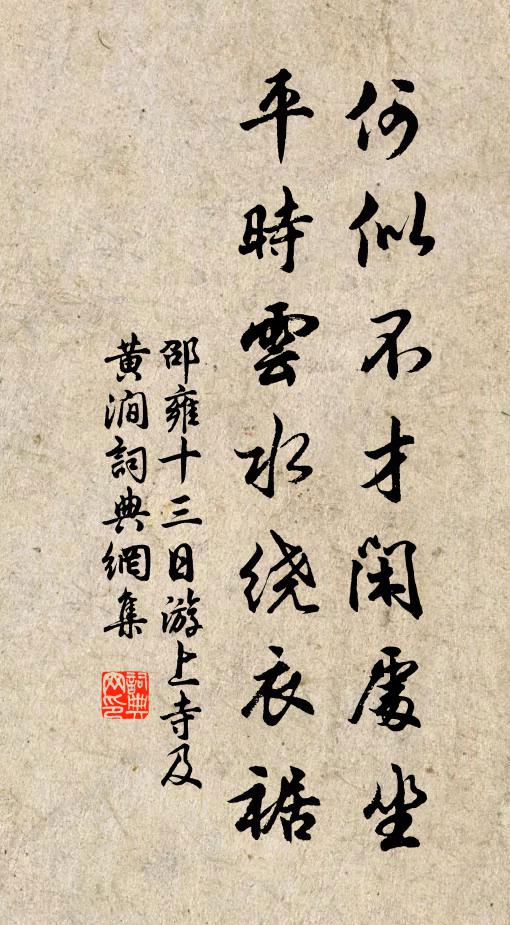 何似不才閑處坐
平時雲水繞衣裾
邵雍十三日游上寺及
黄澗詞典網集
詞典
网印